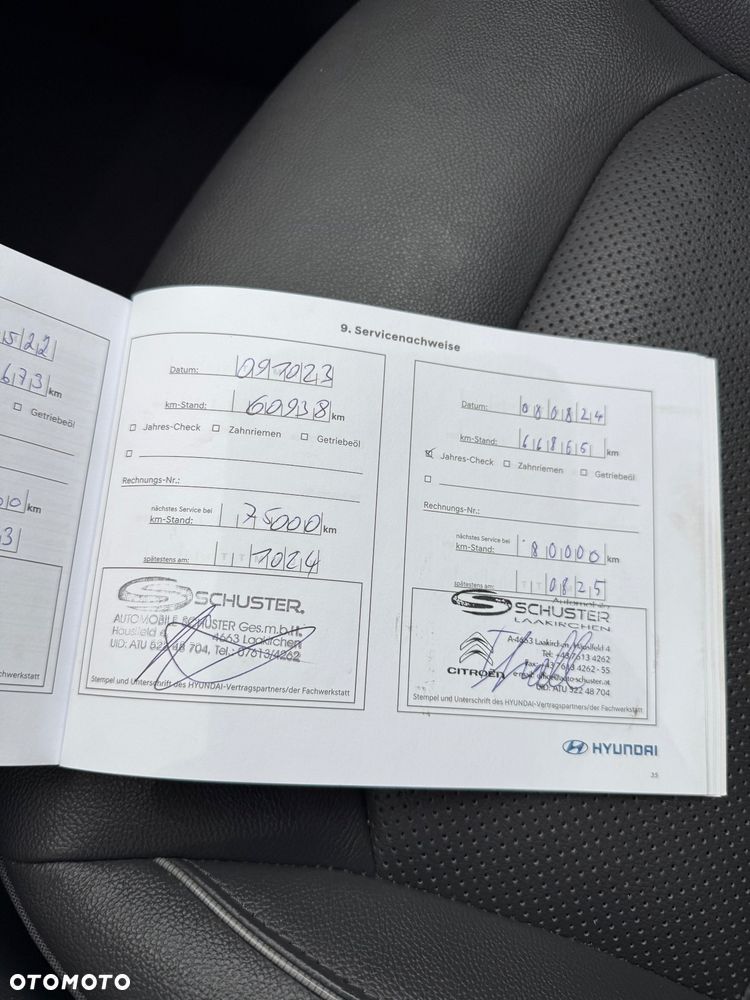 522
673 km
Getriebeöl
00 km
3
chwerkstatt
9. Servicenachweise
Datum: 091023
km-Stand: 60938 km
Jahres-Check Zahnriemen Getriebeöl
Rechnungs-Nr.:
nächstes Service bei
km-Stand: 75000 km
spätestens am: T T 1024
SCHUSTER.
AUTOMOBILE SCHUSTER Ges.m.b.H.
Hausfeld 4663 Laakirchen
UID: ATU 522 48 704, Tel.: 07613/4262
Stempel und Unterschrift des HYUNDAI-Vertragspartners/der Fachwerkstatt
Datum: 080824
km-Stand: 66865 km
Jahres-Check Zahnriemen Getriebeöl
Rechnungs-Nr.:
nächstes Service bei
km-Stand: 80000 km
spätestens am: T T 0825
Automobile
SCHUSTER
LAAKIRCHEN
A-4663 Laakirchen, Hausfeld 4
Tel: +43 7613 4262
Fax: +43 7613 4262-55
CITROËN
e-mail: office@auto-schuster.at
UID: ATU 522 48 704
Stempel und Unterschrift des HYUNDAI-Vertragspartners/der Fachwerkstatt
HYUNDAI
35
OTOMOTO